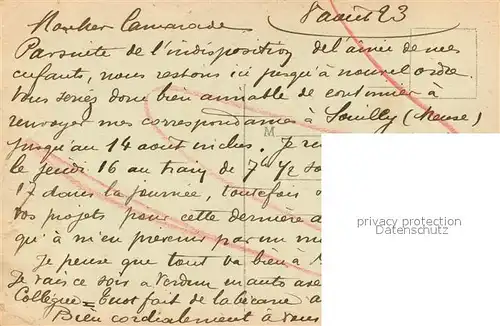 Mon cher Camarade 8 août 23
Par suite de l'indisposition de l'ainé de mes
enfants, nous restons ici jusqu'à nouvel ordre.
Vous seriez donc bien aimable de continuer à
renvoyer mes correspondances à Souilly (Meuse)
jusqu'au 14 août inclus. Je
le jeudi 16 au train de 7h 1/2
17 dans la journée, toutefois
vos projets pour cette dernière
qu'à m'en prévenir par un
Je pense que tout va bien à
Je vais ce soir à Verdun
Collègue = fait de la bécane
Bien cordialement à vous
M
privacy protection
Datenschutz